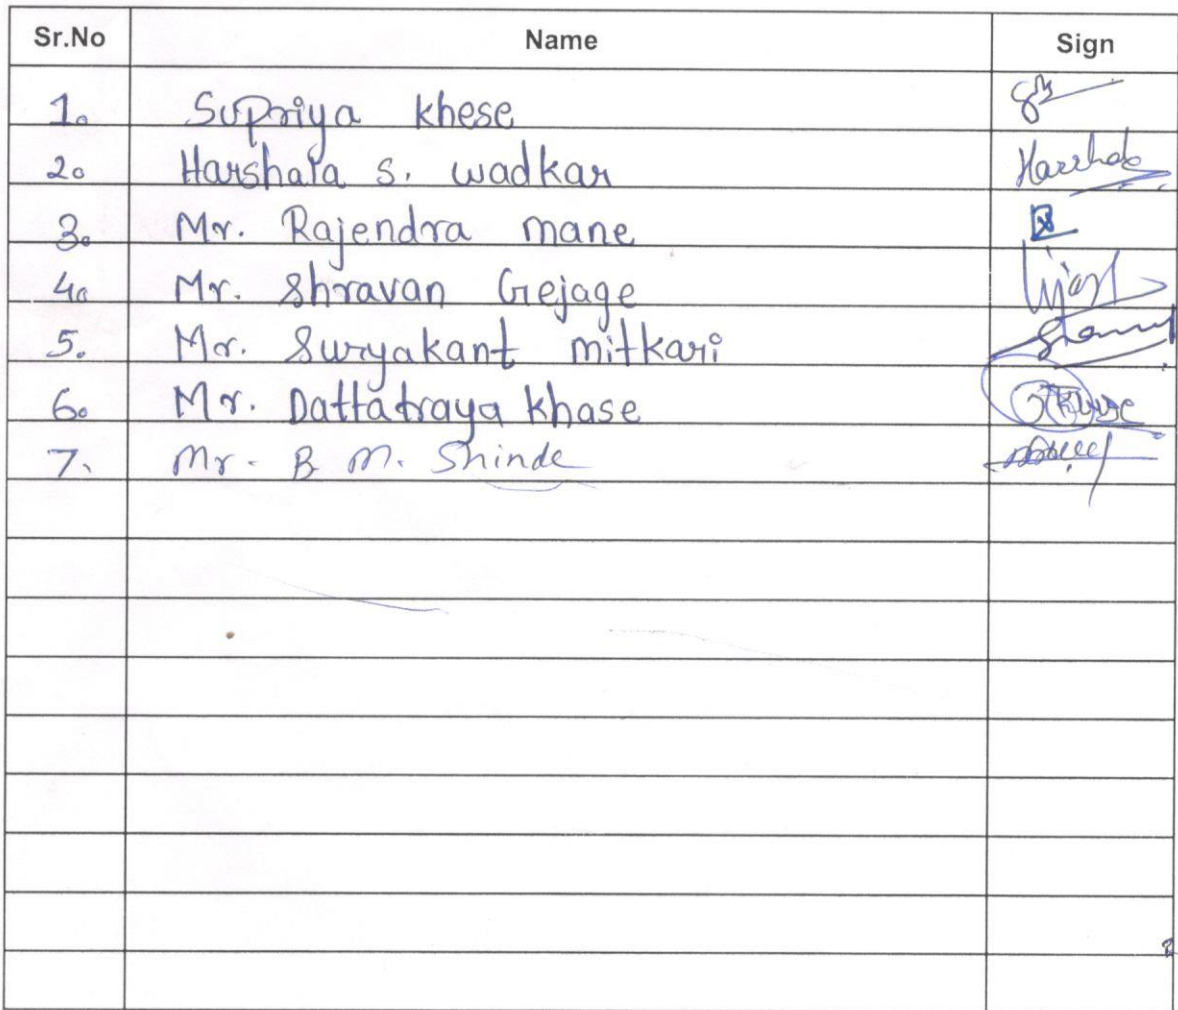 Sr.No Name Sign
1. Supriya khese
2. Harshala s. wadkar Harshala
3. Mr. Rajendra mane
4. Mr. Shravan Gejage
5. Mr. Suryakant mitkari
6. Mr. Dattatraya khase
7. Mr. B m. Shinde